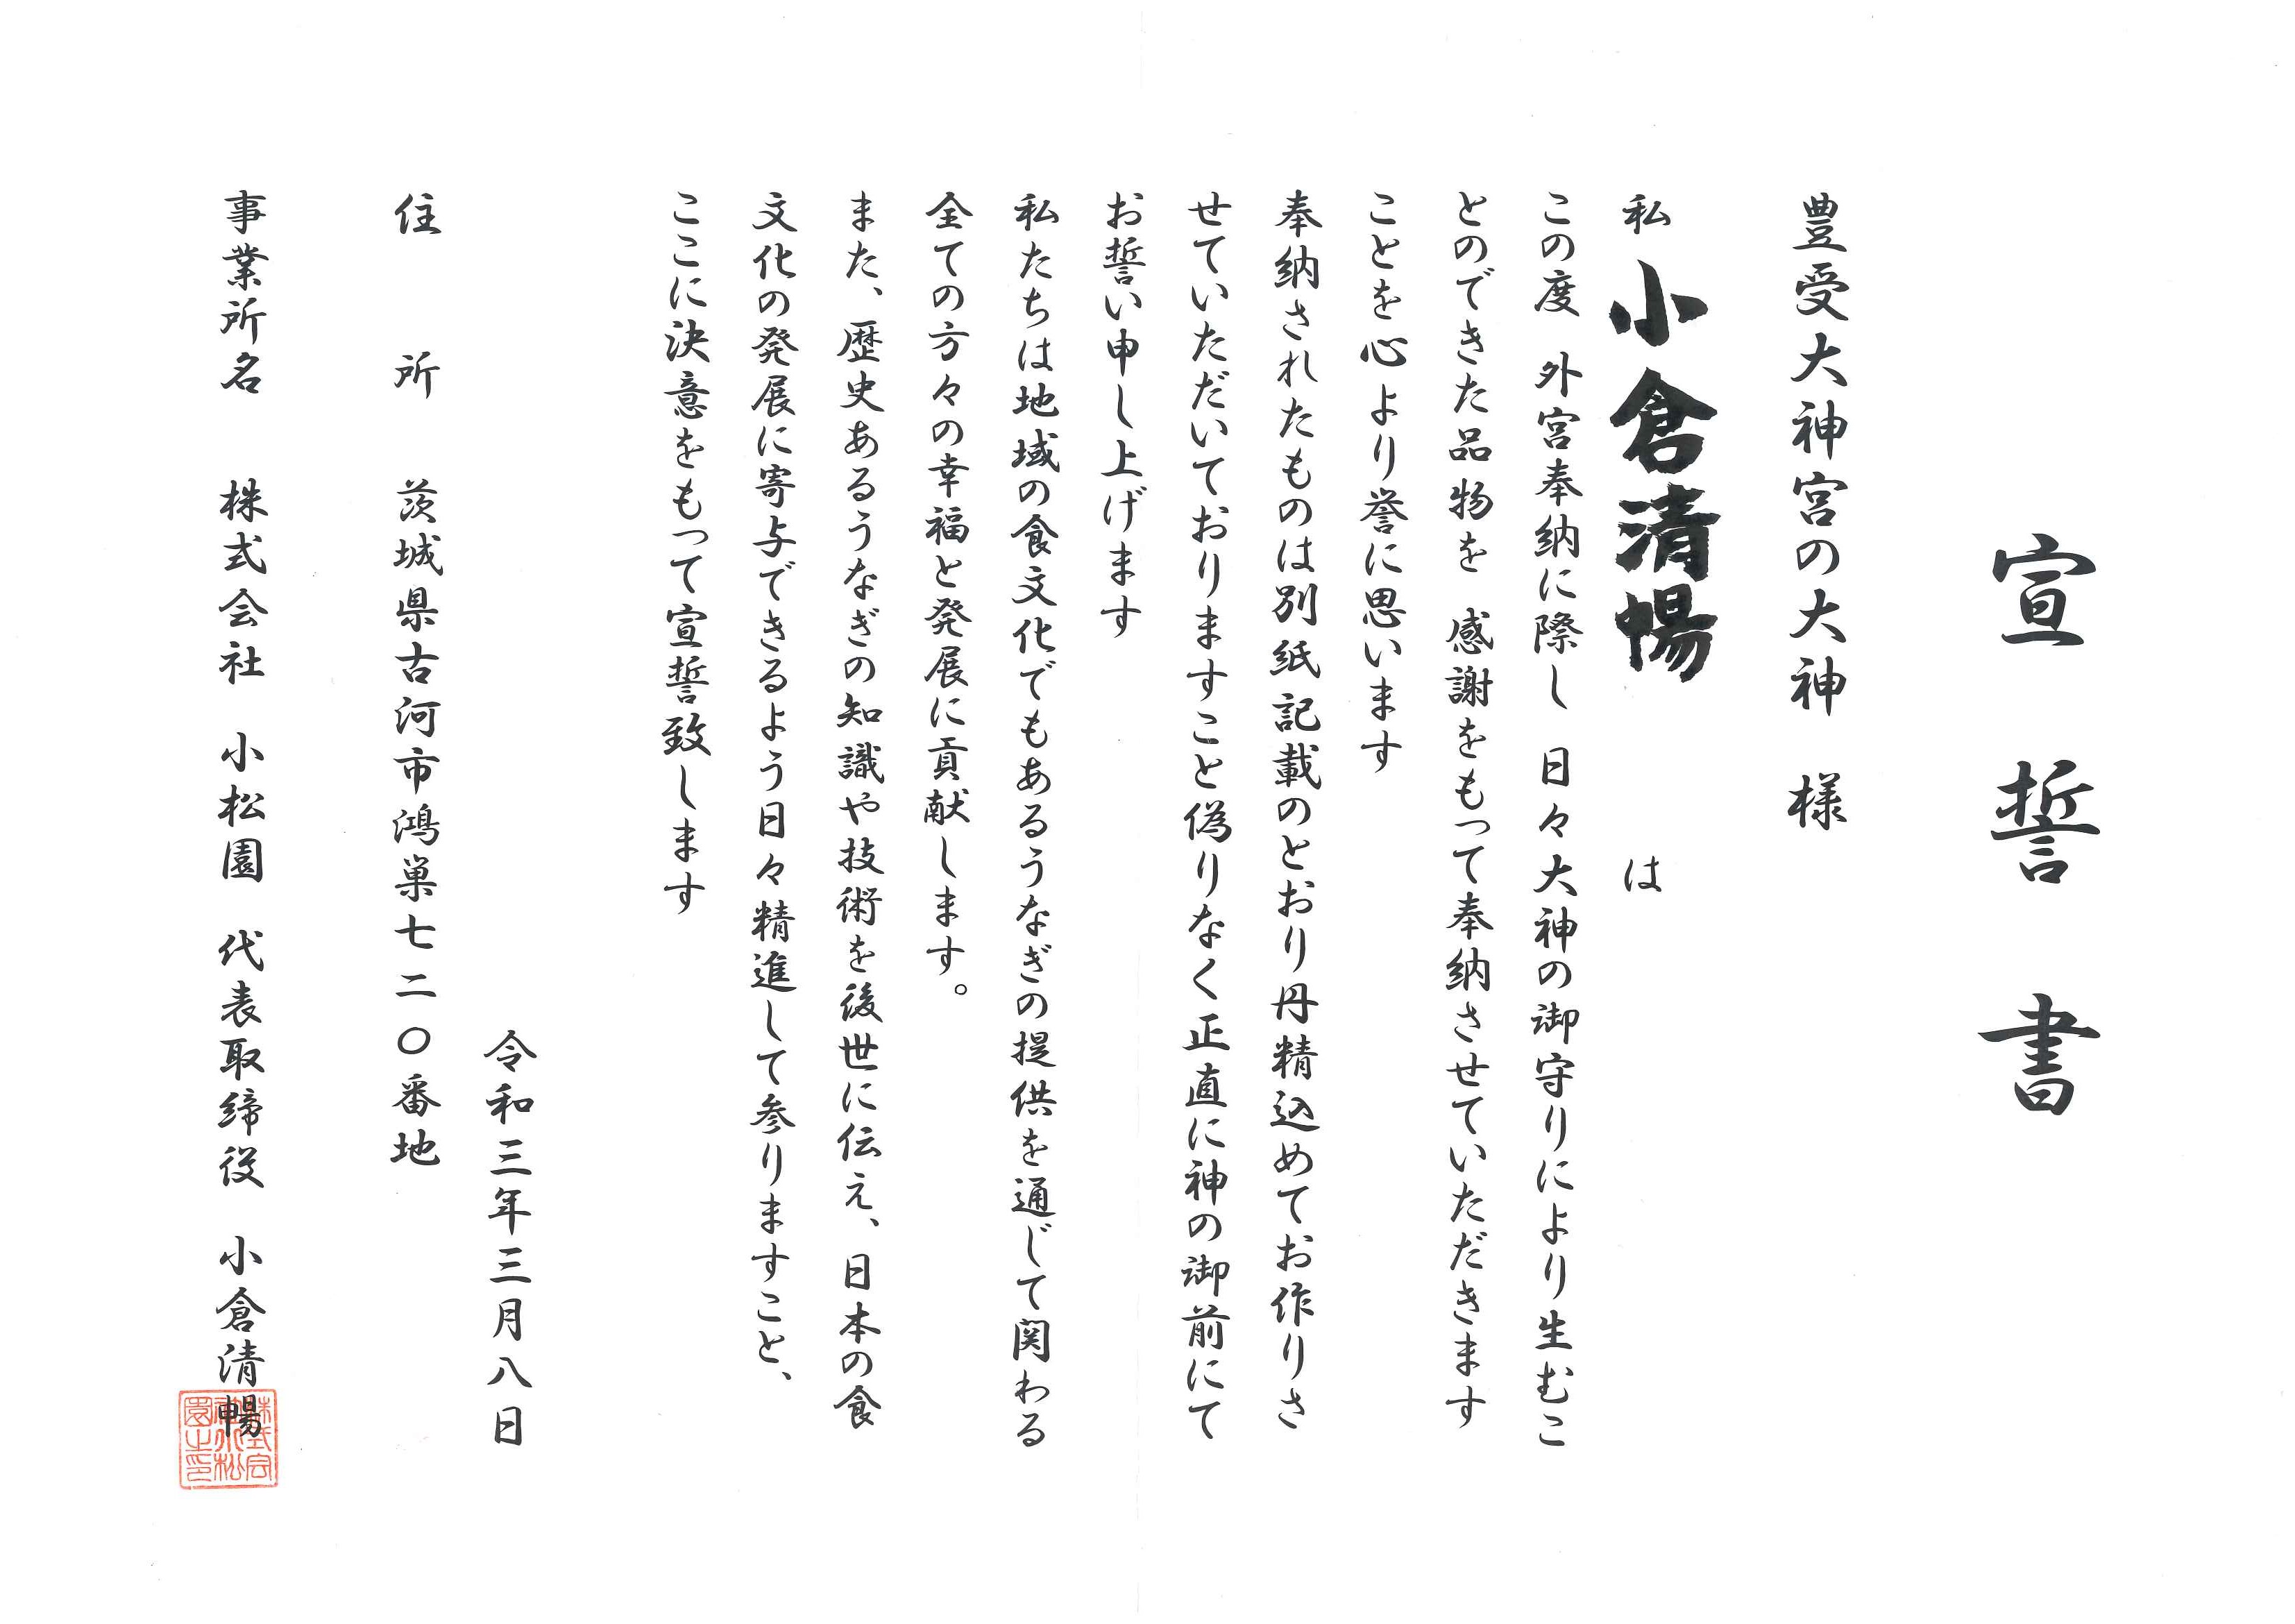 宣誓書
豊受大神宮の大神 様
私 小倉清暢 は
この度 外宮奉納に際し 日々大神の御守りにより生むこ
とのできた品物を 感謝をもって奉納させていただきます
ことを心より誉に思います
奉納されたものは別紙記載のとおり丹精込めてお作りさ
せていただいておりますこと偽りなく正直に神の御前にて
お誓い申し上げます
私たちは地域の食文化でもあるうなぎの提供を通じて関わる
全ての方々の幸福と発展に貢献します。
また、歴史あるうなぎの知識や技術を後世に伝え、日本の食
文化の発展に寄与できるよう日々精進して参りますこと、
ここに決意をもって宣誓致します
令和三年三月八日
住 所 茨城県古河市鴻巣七二〇番地
事業所名 株式会社 小松園 代表取締役 小倉清暢
株式会
社小松
園之印